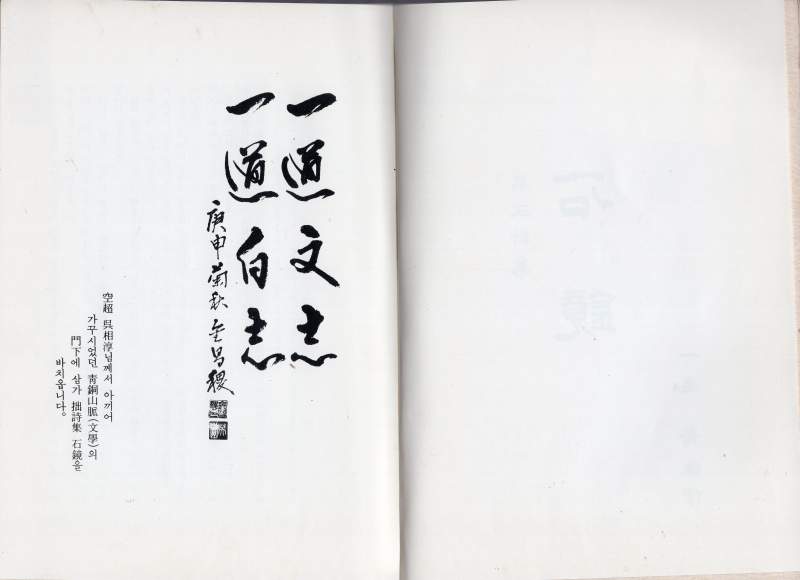 一道文志
一道白志
庚申菊秋 金昌稷
空超 吳相淳님께서 아끼어
가꾸시었던 靑銅山脈(文學)의
門下에 삼가 拙詩集 石鏡을
바치옵니다。